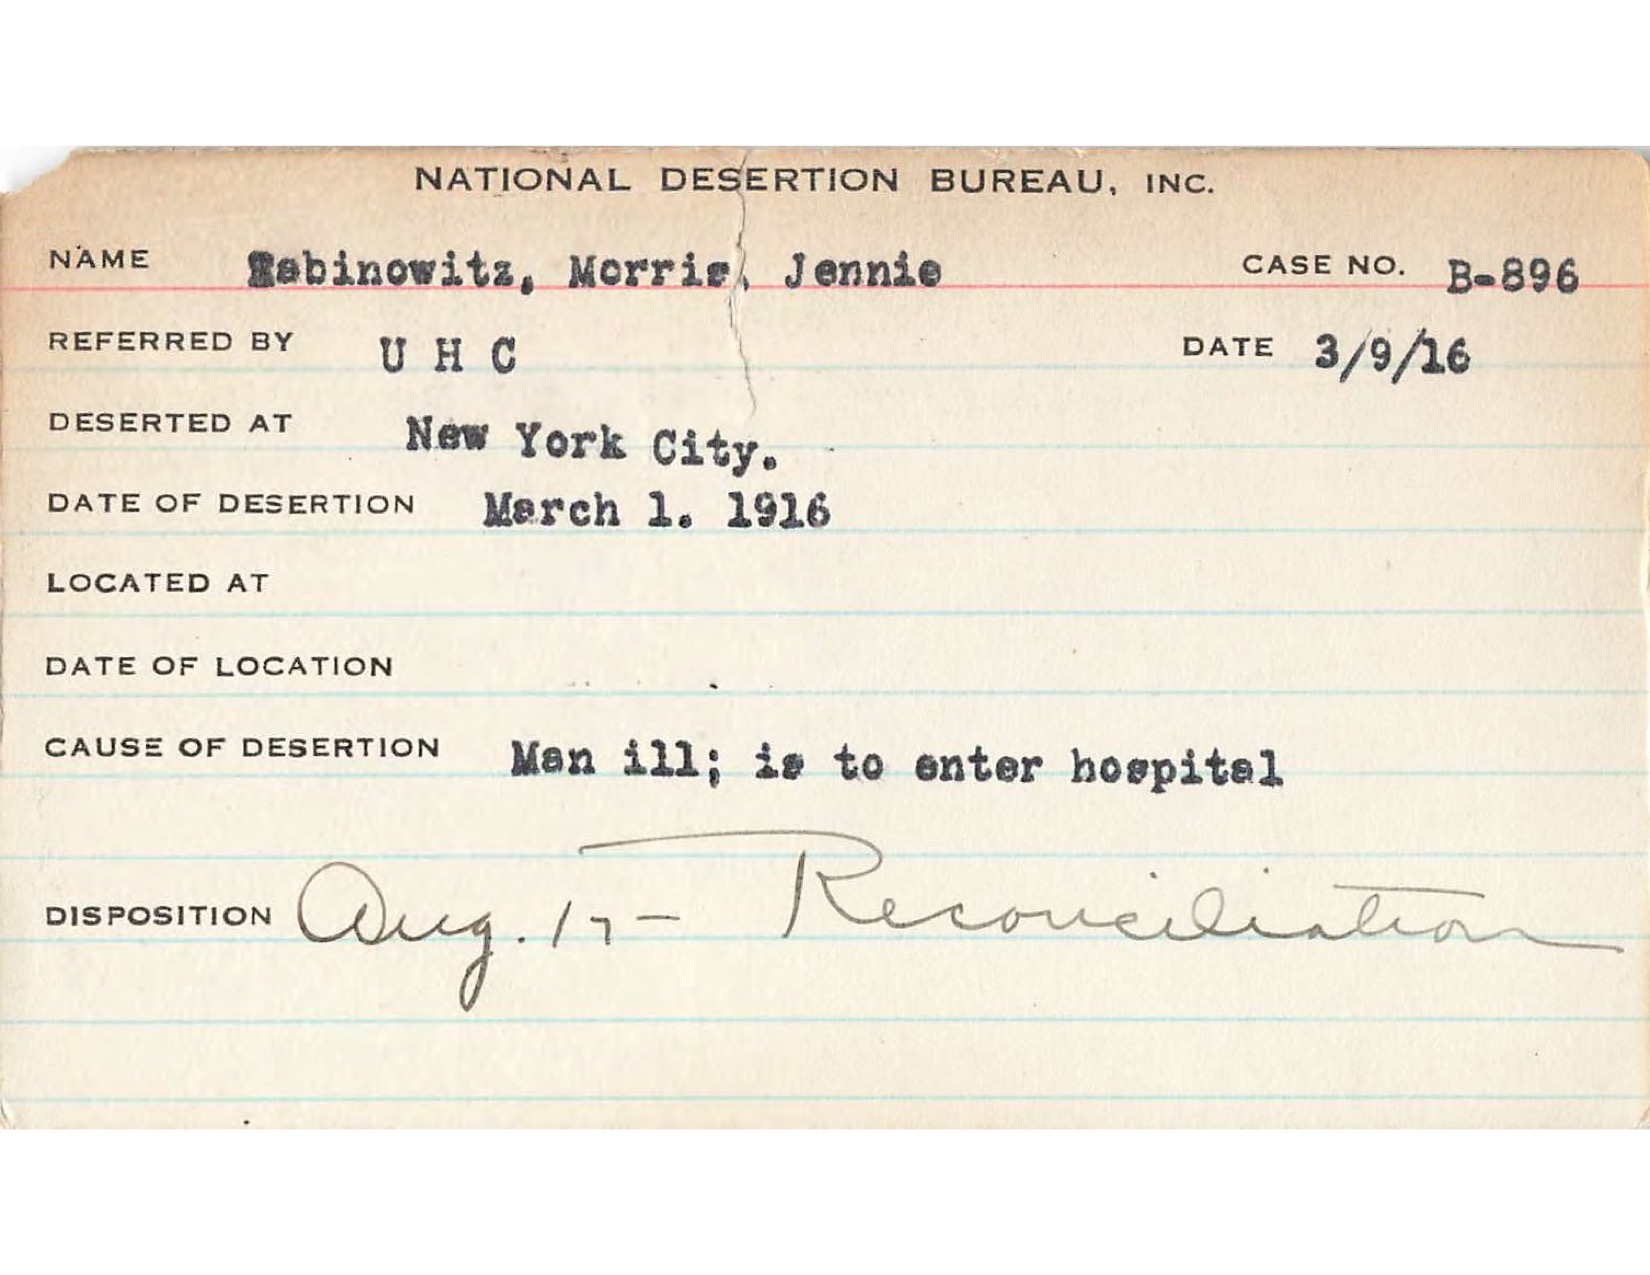 NATIONAL DESERTION BUREAU, INC.
NAME Rabinowitz, Morris, Jennie CASE NO. B-896
REFERRED BY U H C DATE 3/9/16
DESERTED AT New York City.
DATE OF DESERTION March 1. 1916
LOCATED AT
DATE OF LOCATION
CAUSE OF DESERTION Man ill; is to enter hospital
DISPOSITION Aug. 17 — Reconciliation